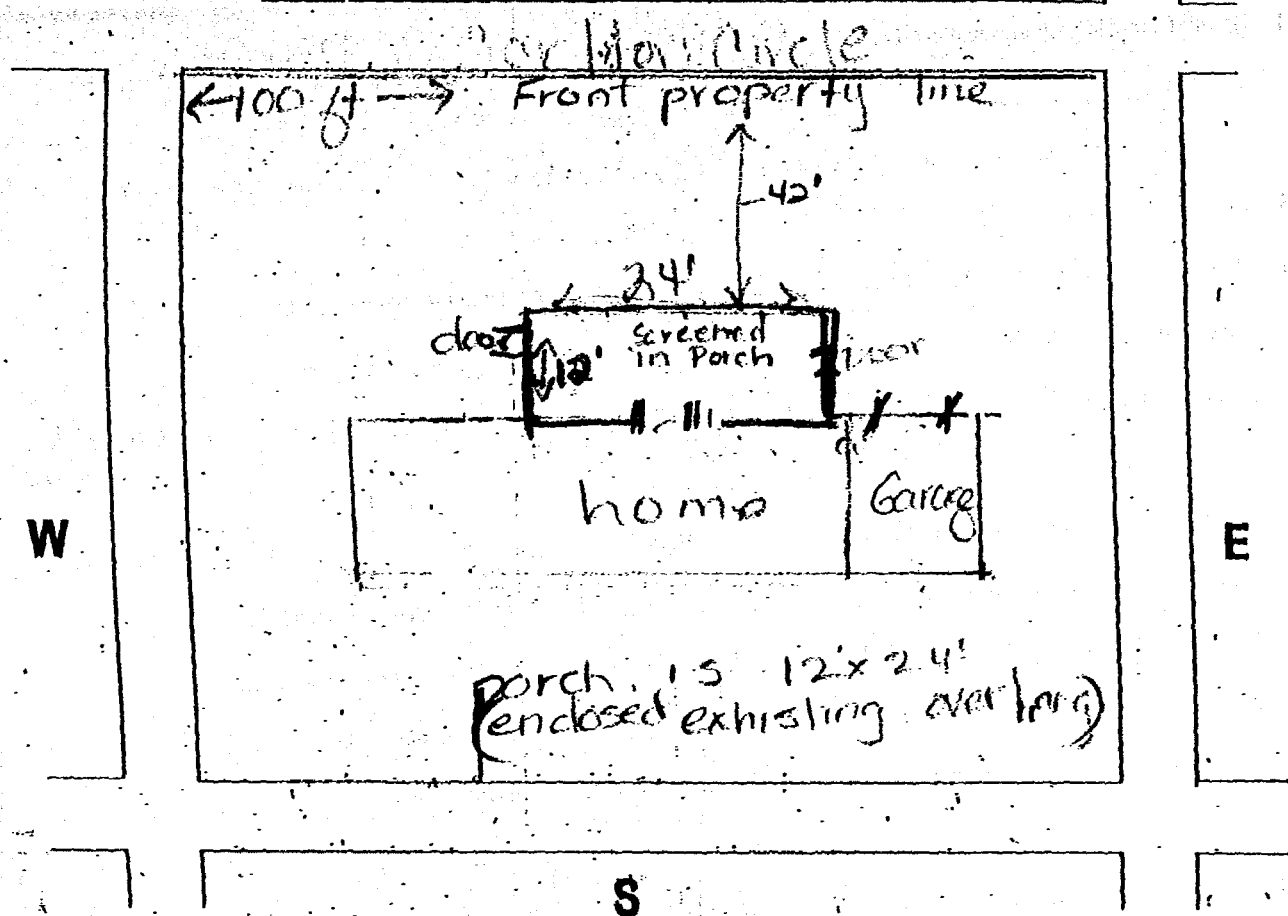 Circle
←100 ft → Front property line
42'
24'
door
Screened
in Porch
door
12'
home
Garage
W
E
porch is 12'x24'
(enclosed exhisting overhang)
S